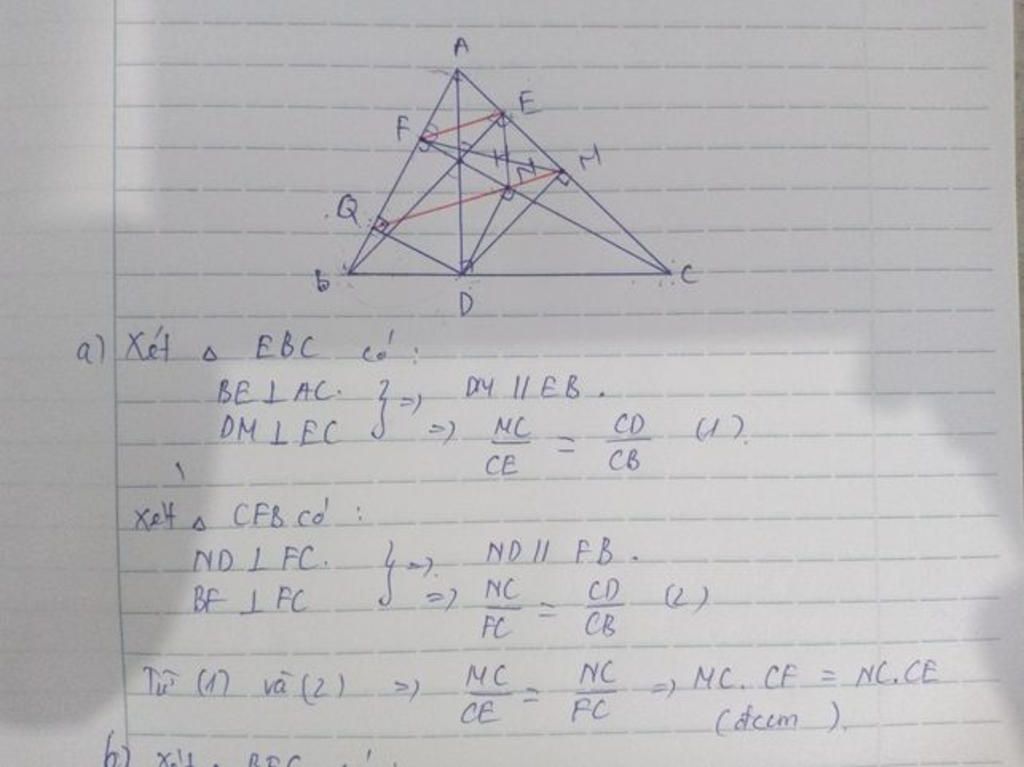 A
E
F
M
I
N
Q
B
D
C
a) Xét △ EBC có :
BE ⊥ AC. } => DM // EB .
DM ⊥ EC => MC/CE = CD/CB (1).
Xét △ CFB có :
ND ⊥ FC. } => ND // FB .
BF ⊥ FC => NC/FC = CD/CB (2)
Từ (1) và (2) => MC/CE = NC/FC => MC. CF = NC.CE
(đccm).
b) Xét △ BEC có :